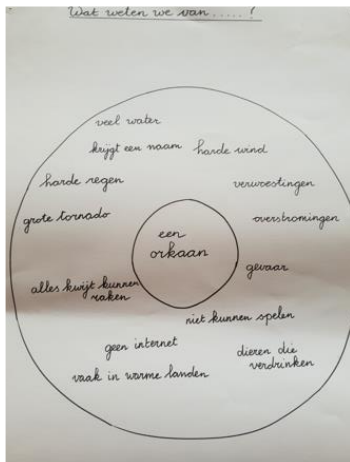 Wat weten we van.....?
veel water
krijgt een naam
harde wind
harde regen
verwoestingen
grote tornado
overstromingen
een
orkaan
gevaar
alles kwijt kunnen
raken
niet kunnen spelen
geen internet
dieren die
verdrinken
vaak in warme landen